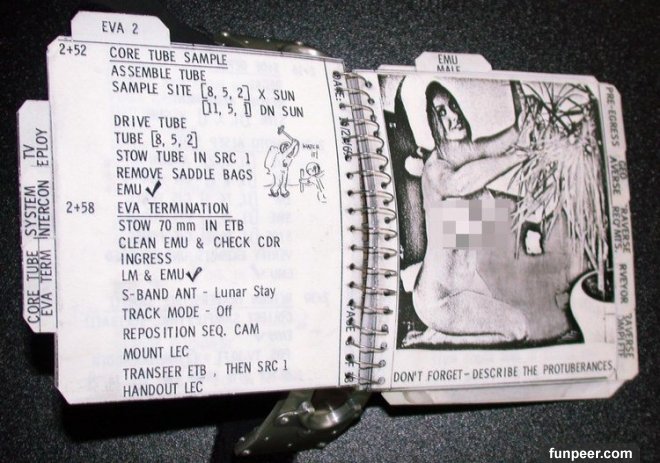 EVA 2
2+52 CORE TUBE SAMPLE
ASSEMBLE TUBE
SAMPLE SITE [8, 5, 2] X SUN
[11, 5, 1] DN SUN
DRIVE TUBE
TUBE [8, 5, 2]
STOW TUBE IN SRC 1
REMOVE SADDLE BAGS
EMU ✓
2+58 EVA TERMINATION
STOW 70 mm IN ETB
CLEAN EMU & CHECK CDR
INGRESS
LM & EMU ✓
S-BAND ANT - Lunar Stay
TRACK MODE - Off
REPOSITION SEQ. CAM
MOUNT LEC
TRANSFER ETB, THEN SRC 1
HANDOUT LEC
CORE TUBE SYSTEM TV
EVA TERM INTERCON EPLOY
WATCH
IT!
EMU
MALF
PRE-EGRESS
GEO
TRAVERSE
DON'T FORGET-DESCRIBE THE PROTUBERANCES
funpeer.com